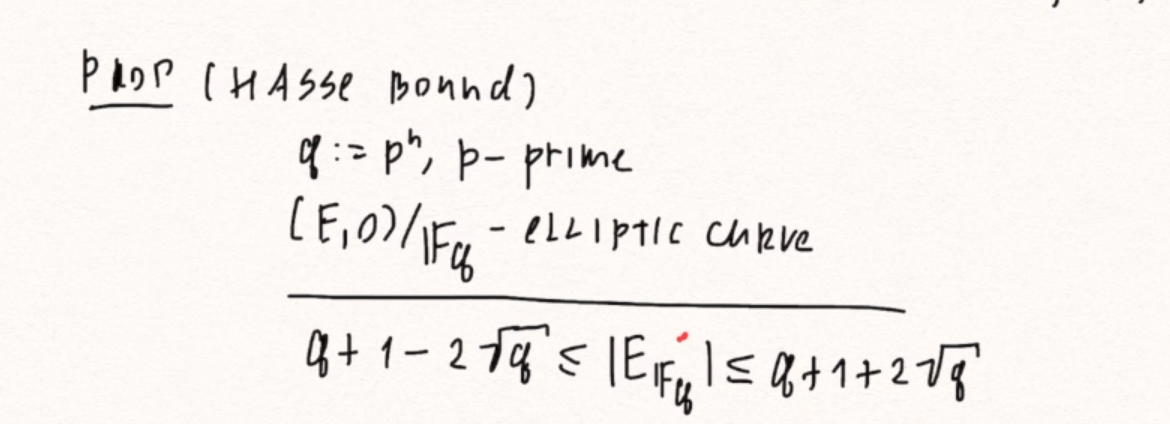 PROP (HASSE BOUND)
q := pⁿ, p - prime
(E,O)/𝔽_q - ELLIPTIC CURVE
q + 1 - 2√q ≤ |E_{𝔽_q}| ≤ q + 1 + 2√q